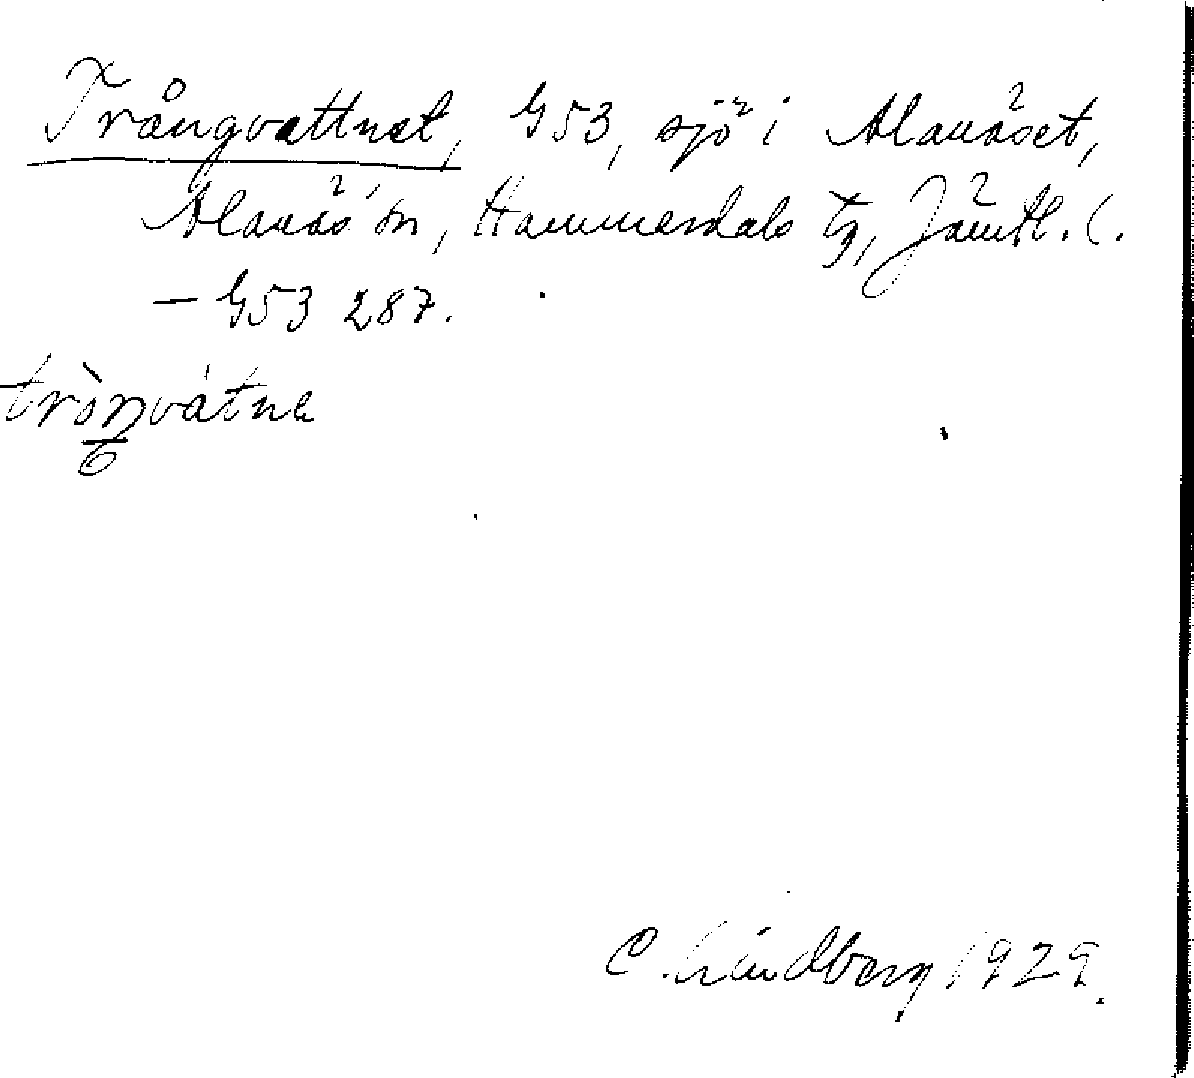 Trångvattnet, G53, sjö i Alanäset,
Alanäs sn, Hammerdals tg, Jämtl. l.
— G53 287.
tròŋvátne
C. Lindberg 1929.